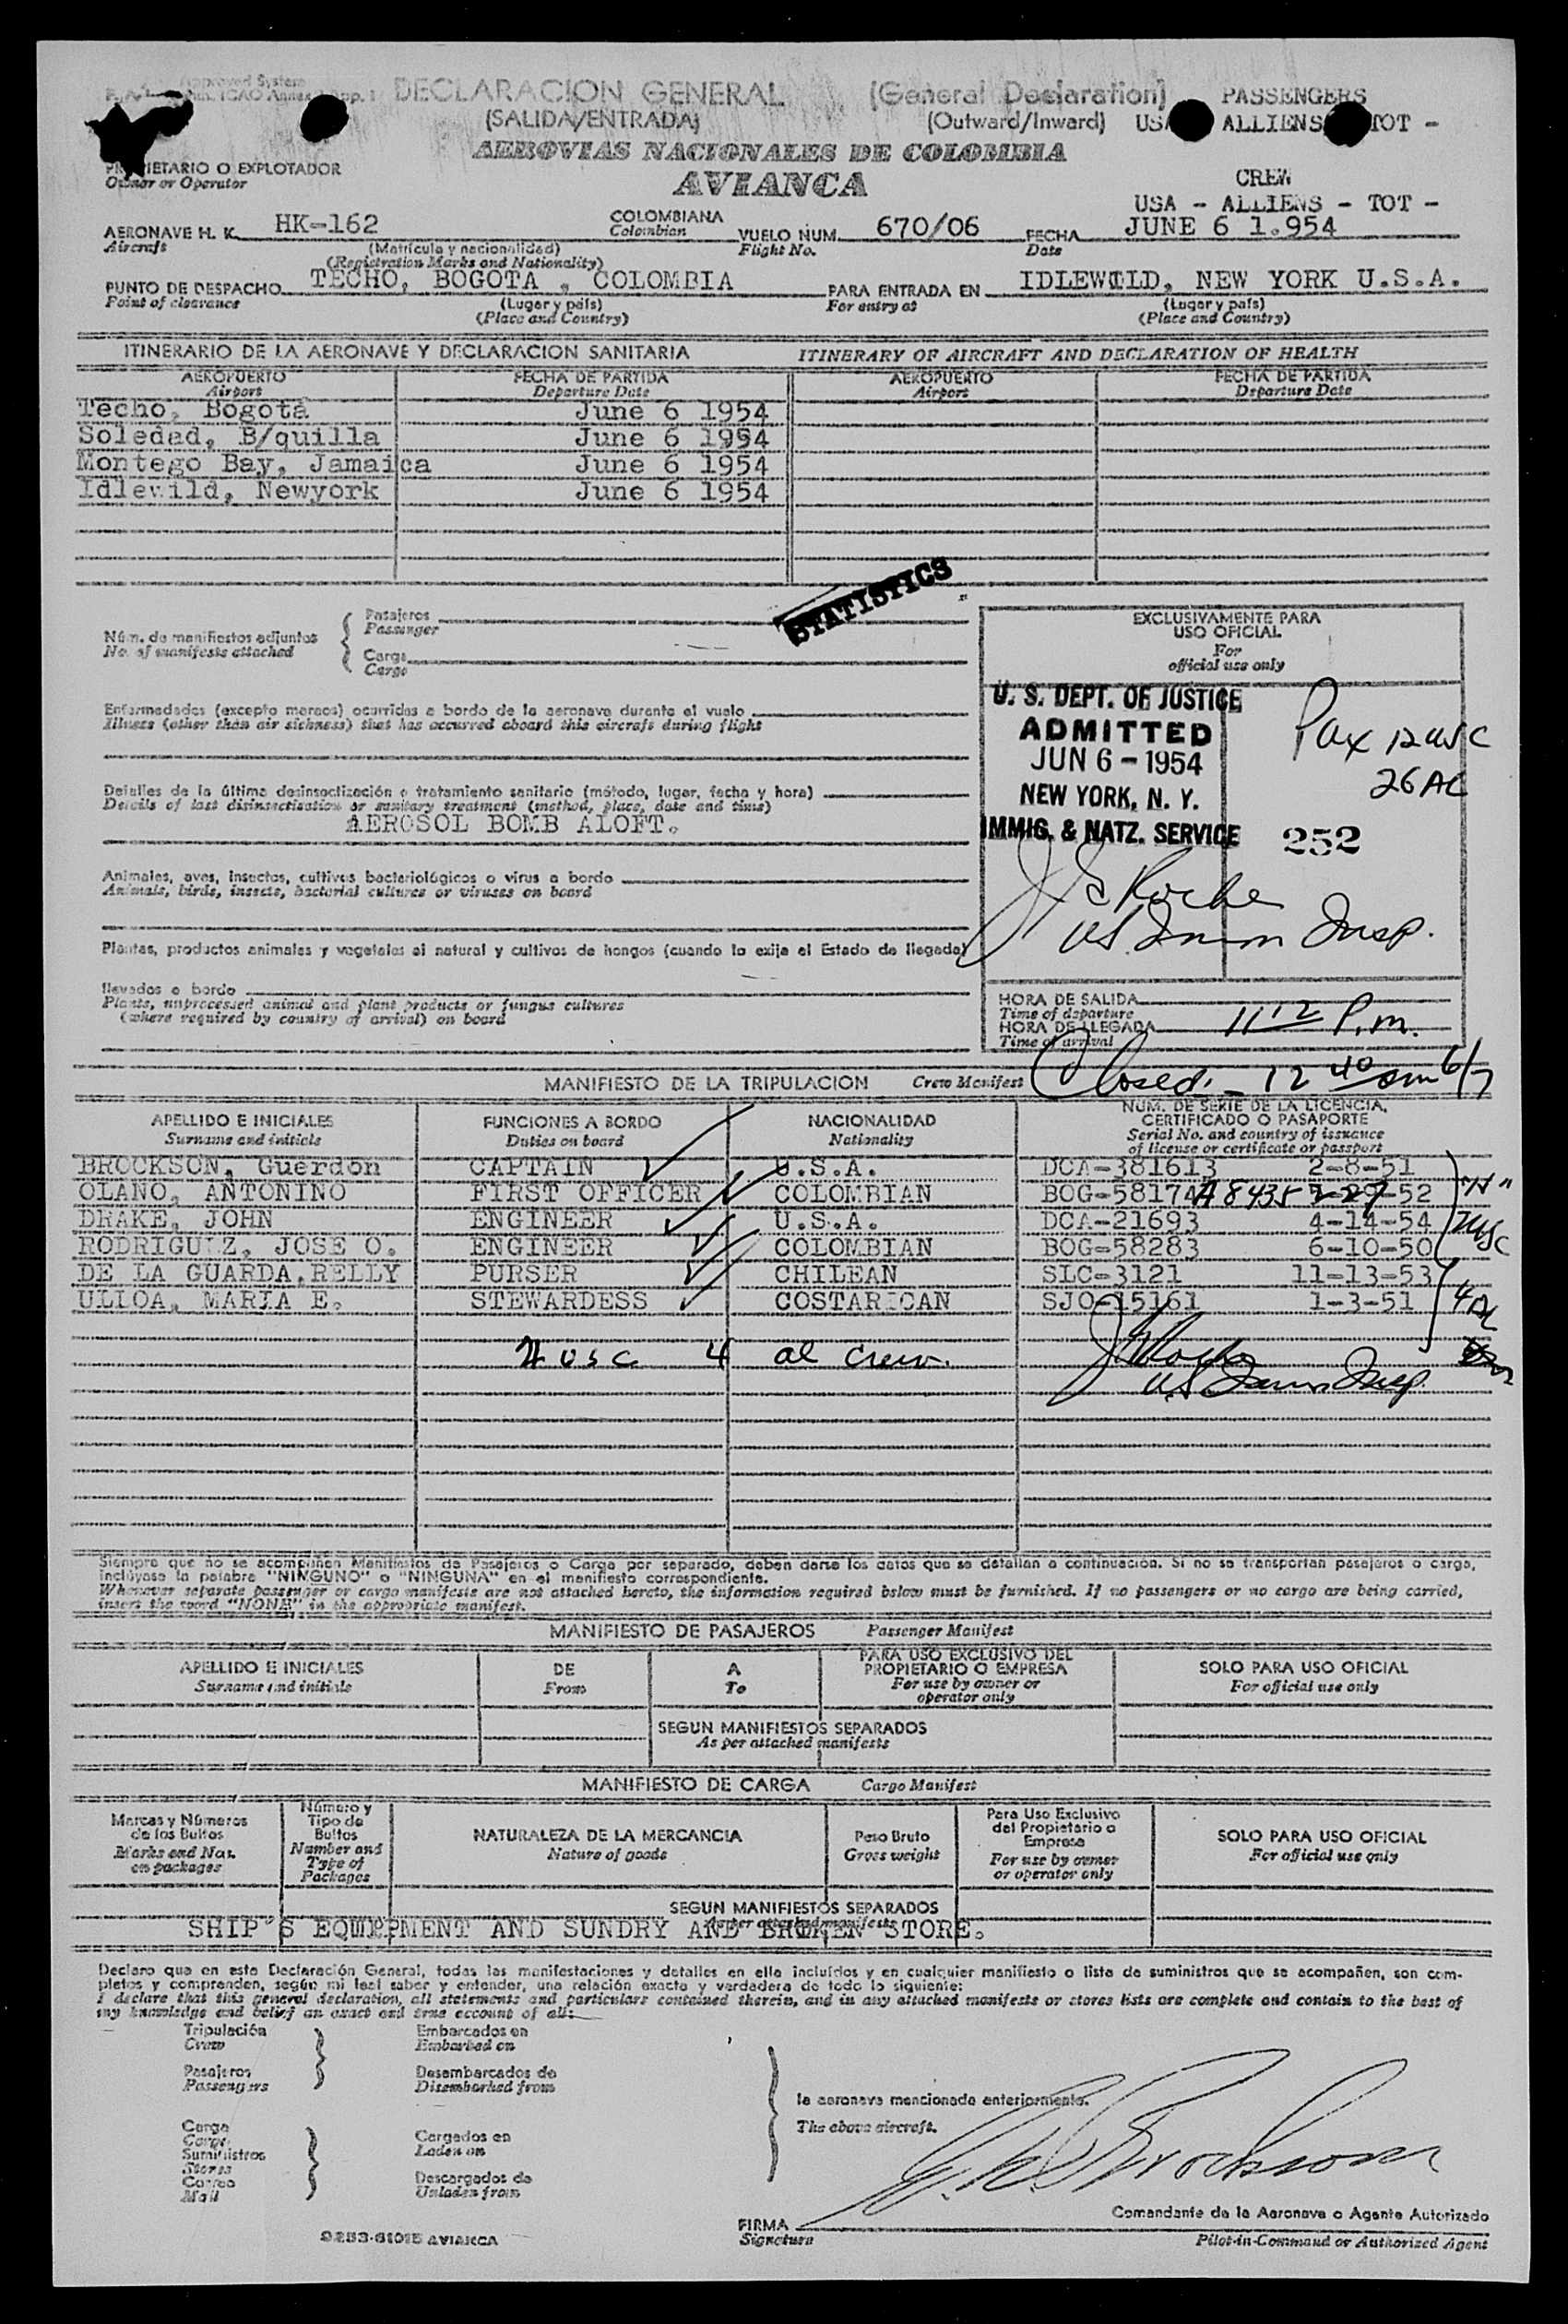 Approved System
DECLARACION GENERAL (General Declaration) PASSENGERS
(SALIDA/ENTRADA) (Outward/Inward) ALLIENS TOT -
AEROVIAS NACIONALES DE COLOMBIA
AVIANCA
O EXPLOTADOR
Owner or Operator
CREW
USA - ALLIENS - TOT -
AERONAVE H. K. HK-162 COLOMBIANA VUELO NUM. 670/06 FECHA JUNE 6 1.954
Aircraft (Matrícula y nacionalidad) Colombian Flight No. Date
(Registration Marks and Nationality)
PUNTO DE DESPACHO TECHO, BOGOTA , COLOMBIA PARA ENTRADA EN IDLEWILD, NEW YORK U.S.A.
Point of clearance (Lugar y país) For entry at (Lugar y país)
(Place and Country) (Place and Country)
ITINERARIO DE LA AERONAVE Y DECLARACION SANITARIA ITINERARY OF AIRCRAFT AND DECLARATION OF HEALTH
AEROPUERTO FECHA DE PARTIDA AEROPUERTO FECHA DE PARTIDA
Airport Departure Date Airport Departure Date
Techo, Bogotá June 6 1954
Soledad, B/quilla June 6 1954
Montego Bay, Jamaica June 6 1954
Idlewild, Newyork June 6 1954
STATISTICS
Núm. de manifiestos adjuntos Pasajeros
No. of manifests attached Passenger
Carga
Cargo
EXCLUSIVAMENTE PARA
USO OFICIAL
For
official use only
Enfermedades (excepto mareos) ocurridas a bordo de la aeronave durante el vuelo
Illness (other than air sickness) that has occurred aboard this aircraft during flight
U. S. DEPT. OF JUSTICE
ADMITTED
JUN 6 - 1954
NEW YORK, N. Y.
IMMIG. & NATZ. SERVICE
Pax 12 usc
26 AL
252
US. Immn Insp.
Detalles de la última desinsectización o tratamiento sanitario (método, lugar, fecha y hora)
Details of last disinsectisation or sanitary treatment (method, place, date and time)
AEROSOL BOMB ALOFT.
Animales, aves, insectos, cultivos bacteriológicos o virus a bordo
Animals, birds, insects, bacterial cultures or viruses on board
Plantas, productos animales y vegetales al natural y cultivos de hongos (cuando lo exija el Estado de llegada)
llevados a bordo
Plants, unprocessed animal and plant products or fungus cultures
(where required by country of arrival) on board
HORA DE SALIDA
Time of departure
HORA DE LLEGADA 11 12 P.m.
Time of arrival
Closed - 12 40 am 6/7
MANIFIESTO DE LA TRIPULACION Crew Manifest
APELLIDO E INICIALES FUNCIONES A BORDO NACIONALIDAD NUM. DE SERIE DE LA LICENCIA,
CERTIFICADO O PASAPORTE
Surname and initials Duties on board Nationality Serial No. and country of issuance
of license or certificate or passport
BROCKSON, Guerdon CAPTAIN U.S.A. DCA-381613 2-8-51
OLANO, ANTONINO FIRST OFFICER COLOMBIAN -52
DRAKE, JOHN ENGINEER U.S.A. DCA-21693 4-14-54 2usc
RODRIGUEZ, JOSE O. ENGINEER COLOMBIAN BOG-58283 6-10-50
DE LA GUARDA, RELLY PURSER CHILEAN SLC-3121 11-13-53
ULLOA, MARIA E. STEWARDESS COSTARICAN SJO-15161 1-3-51 4 AL
2 usc 4 al crew.
US Immn Insp.
Siempre que no se acompañen Manifiestos de Pasajeros o Carga por separado, deben darse los datos que se detallan a continuación. Si no se transportan pasajeros o carga,
inclúyase la palabra "NINGUNO" o "NINGUNA" en el manifiesto correspondiente.
Whenever separate passenger or cargo manifests are not attached hereto, the information required below must be furnished. If no passengers or no cargo are being carried,
insert the word "NONE" in the appropriate manifest.
MANIFIESTO DE PASAJEROS Passenger Manifest
APELLIDO E INICIALES DE A PARA USO EXCLUSIVO DEL PROPIETARIO O EMPRESA SOLO PARA USO OFICIAL
Surname and initials From To For use by owner or operator only For official use only
SEGUN MANIFIESTOS SEPARADOS
As per attached manifests
MANIFIESTO DE CARGA Cargo Manifest
Marcas y Números de los Bultos Número y Tipo de Bultos NATURALEZA DE LA MERCANCIA Peso Bruto Para Uso Exclusivo del Propietario o Empresa SOLO PARA USO OFICIAL
Marks and Nos. on packages Number and Type of Packages Nature of goods Gross weight For use by owner or operator only For official use only
SEGUN MANIFIESTOS SEPARADOS
As per attached manifests
SHIP'S EQUIPMENT AND SUNDRY AND BROKEN STORE.
Declaro que en esta Declaración General, todas las manifestaciones y detalles en ella incluídos y en cualquier manifiesto o lista de suministros que se acompañen, son com-
pletos y comprenden, según mi leal saber y entender, una relación exacta y verdadera de todo lo siguiente:
I declare that this general declaration, all statements and particulars contained therein, and in any attached manifests or stores lists are complete and contain to the best of
my knowledge and belief an exact and true account of all:
Tripulación Embarcados en
Crew Embarked on
Pasajeros Desembarcados de
Passengers Disembarked from
la aeronave mencionada anteriormente.
The above aircraft.
Carga Cargados en
Cargo Laden on
Suministros
Stores
Correo Descargados de
Mail Unladen from
G. W. Brockson
Comandante de la Aeronave o Agente Autorizado
FIRMA
Signature Pilot-in-Command or Authorized Agent
9253-61015 AVIANCA